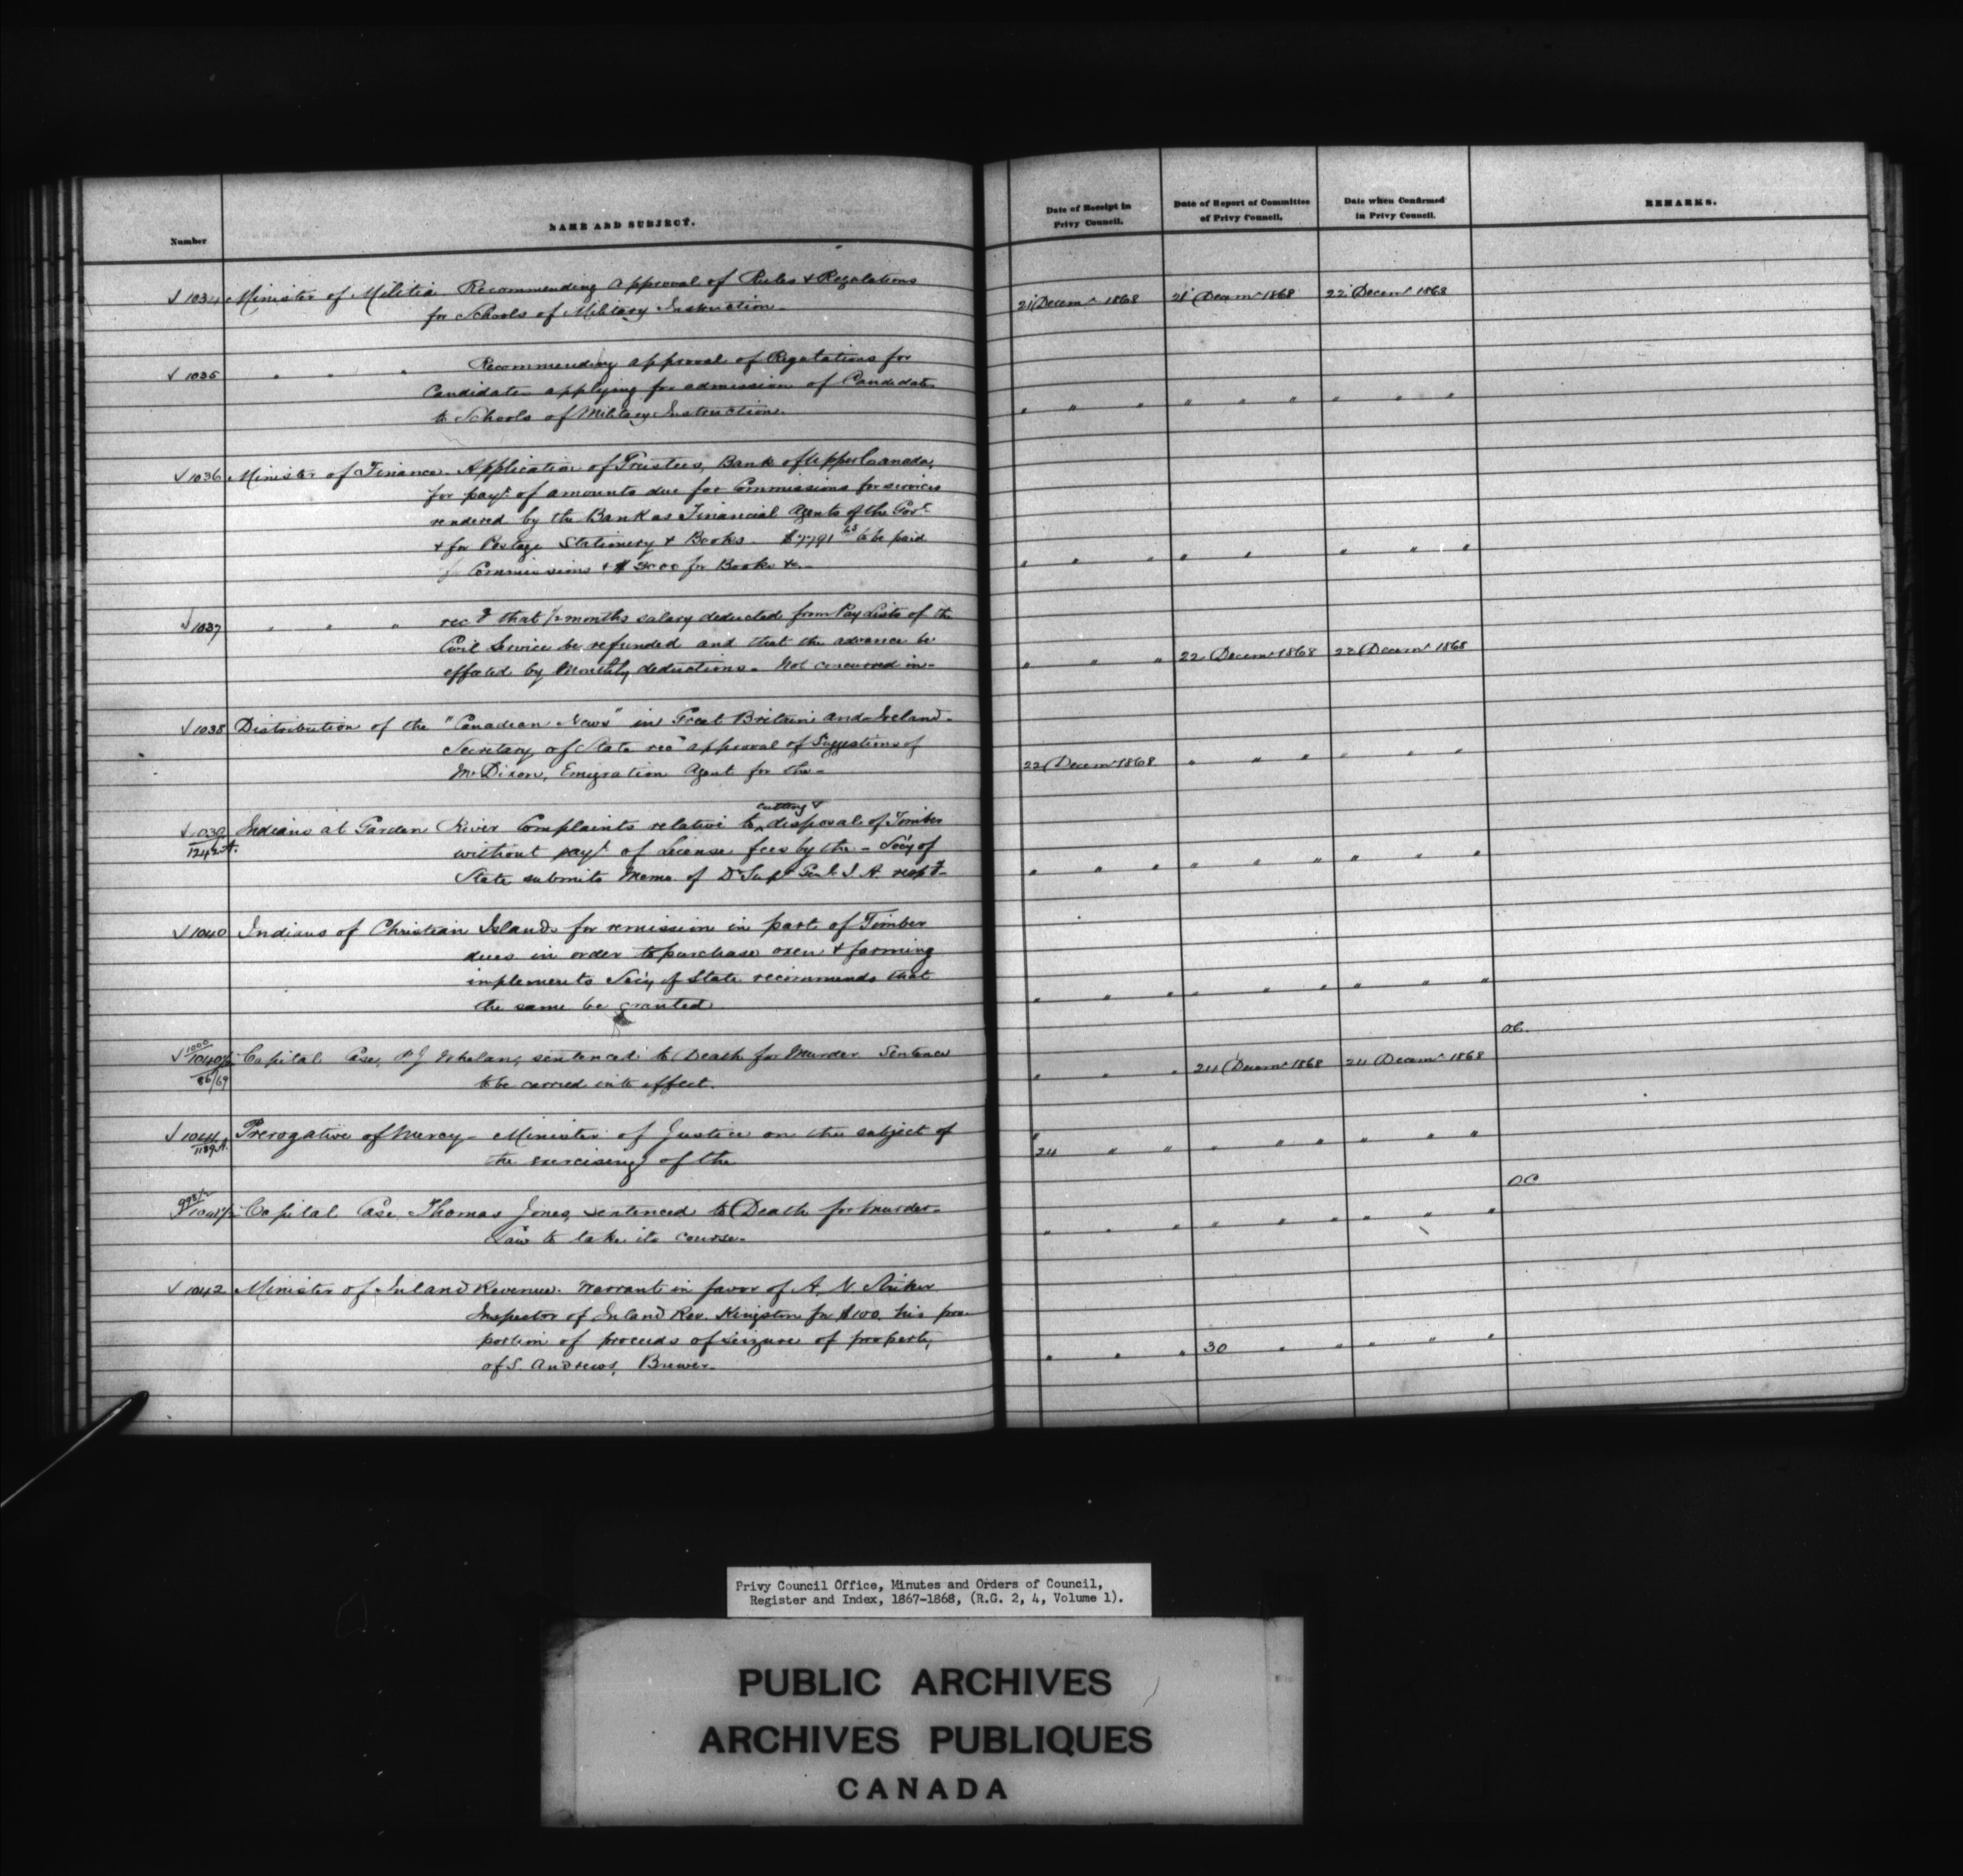 Number
NAME AND SUBJECT.
Date of Receipt in
Privy Council.
Date of Report of Committee
of Privy Council.
Date when Confirmed
in Privy Council.
REMARKS.
√ 1034 Minister of Militia Recommending approval of Rules & Regulations
for Schools of Military Instruction. 21 Decemr 1868 21 Decemr 1868 22 Decemr 1868
√ 1035 " " " Recommending approval of Regulations for
Candidates applying for admission of Candidates
to Schools of Military Instruction. " " " " " " " " "
√ 1036 Minister of Finance. Application of Trustees, Bank of Upper Canada,
for payt. of amounts due for Commissions for services
rendered by the Bank as Financial Agents of the Govt.
& for Postage Stationery & Books. $7791 63 to be paid
for Commissions & $3000 for Books &c. " " " " " " " "
√ 1037 " " " recd that 1/2 months salary deducted from Pay Lists of the
Civil Service be refunded and that the advance be
effected by Monthly deductions. Not concurred in. " " " 22 Decemr 1868 22 Decemr 1868
√ 1038 Distribution of the "Canadian News" in Great Britain and Ireland.
Secretary of State recs approval of Suggestions of
Mr Dixon, Emigration Agent for the. 22 Decemr 1868 " " " " " "
cutting &
√ 1039 Indians at Garden River Complaints relative to ^ disposal of Timber
1242 A. without payt. of License fees by the - Secy of
State submits Memo. of Dy Supt Genl. I. A. respg. " " " " " " " " "
√ 1040 Indians of Christian Islands for remission in part of Timber
dues in order to purchase oxen & farming
implements Secy of State recommends that
the same be granted " " " " " " " " "
OC.
1000
√ 1040 1/2 Capital Case, P J Whelan, sentenced to Death for Murder Sentence " " " 24 Decemr 1868 24 Decemr 1868
86/69 to be carried into effect.
√ 1041 Prerogative of Mercy - Minister of Justice on the subject of
1189 A. the exercising of the 24 " " " " " " " "
OC
998 1/2
√ 1041 1/2 Capital Case Thomas Jones, sentenced to Death for Murder. " " " " " " " " "
Law to take its course.
√ 1042 Minister of Inland Revenue. Warrant in favor of A. N.
Inspector of Inland Rev. Kingston for $100, his pro-
portion of proceeds of seizure of property
of S. Andrews, Brewer. " " " 30 " " " " "
Privy Council Office, Minutes and Orders of Council,
Register and Index, 1867-1868, (R.G. 2, 4, Volume 1).
PUBLIC ARCHIVES
ARCHIVES PUBLIQUES
CANADA